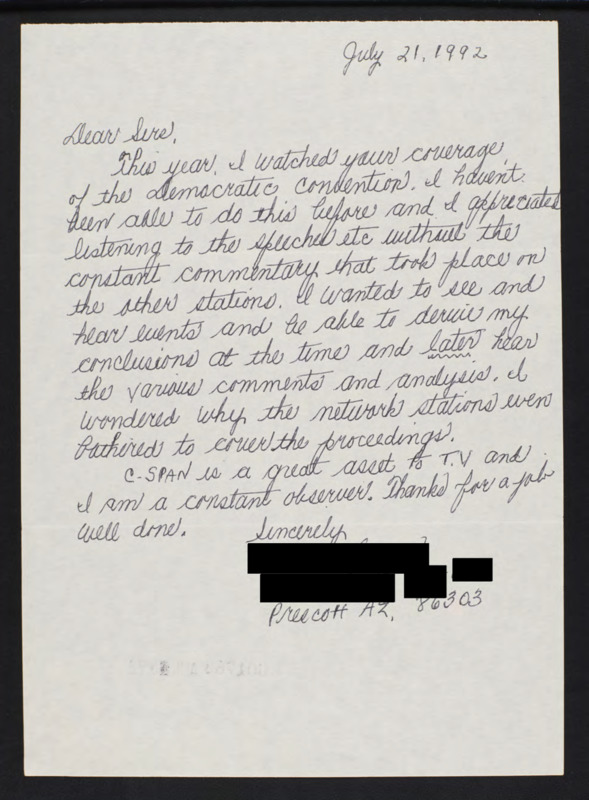 July 21, 1992
Dear Sirs,
This year, I watched your coverage
of the Democratic Convention. I haven't
been able to do this before and I appreciated
listening to the speeches etc without the
constant commentary that took place on
the other stations. I wanted to see and
hear events and be able to derive my
conclusions at the time and later hear
the various comments and analysis. I
wondered why the network stations even
bothered to cover the proceedings.
C-SPAN is a great asset to T.V and
I am a constant observer. Thanks for a job
well done.
Sincerely
Prescott AZ, 86303